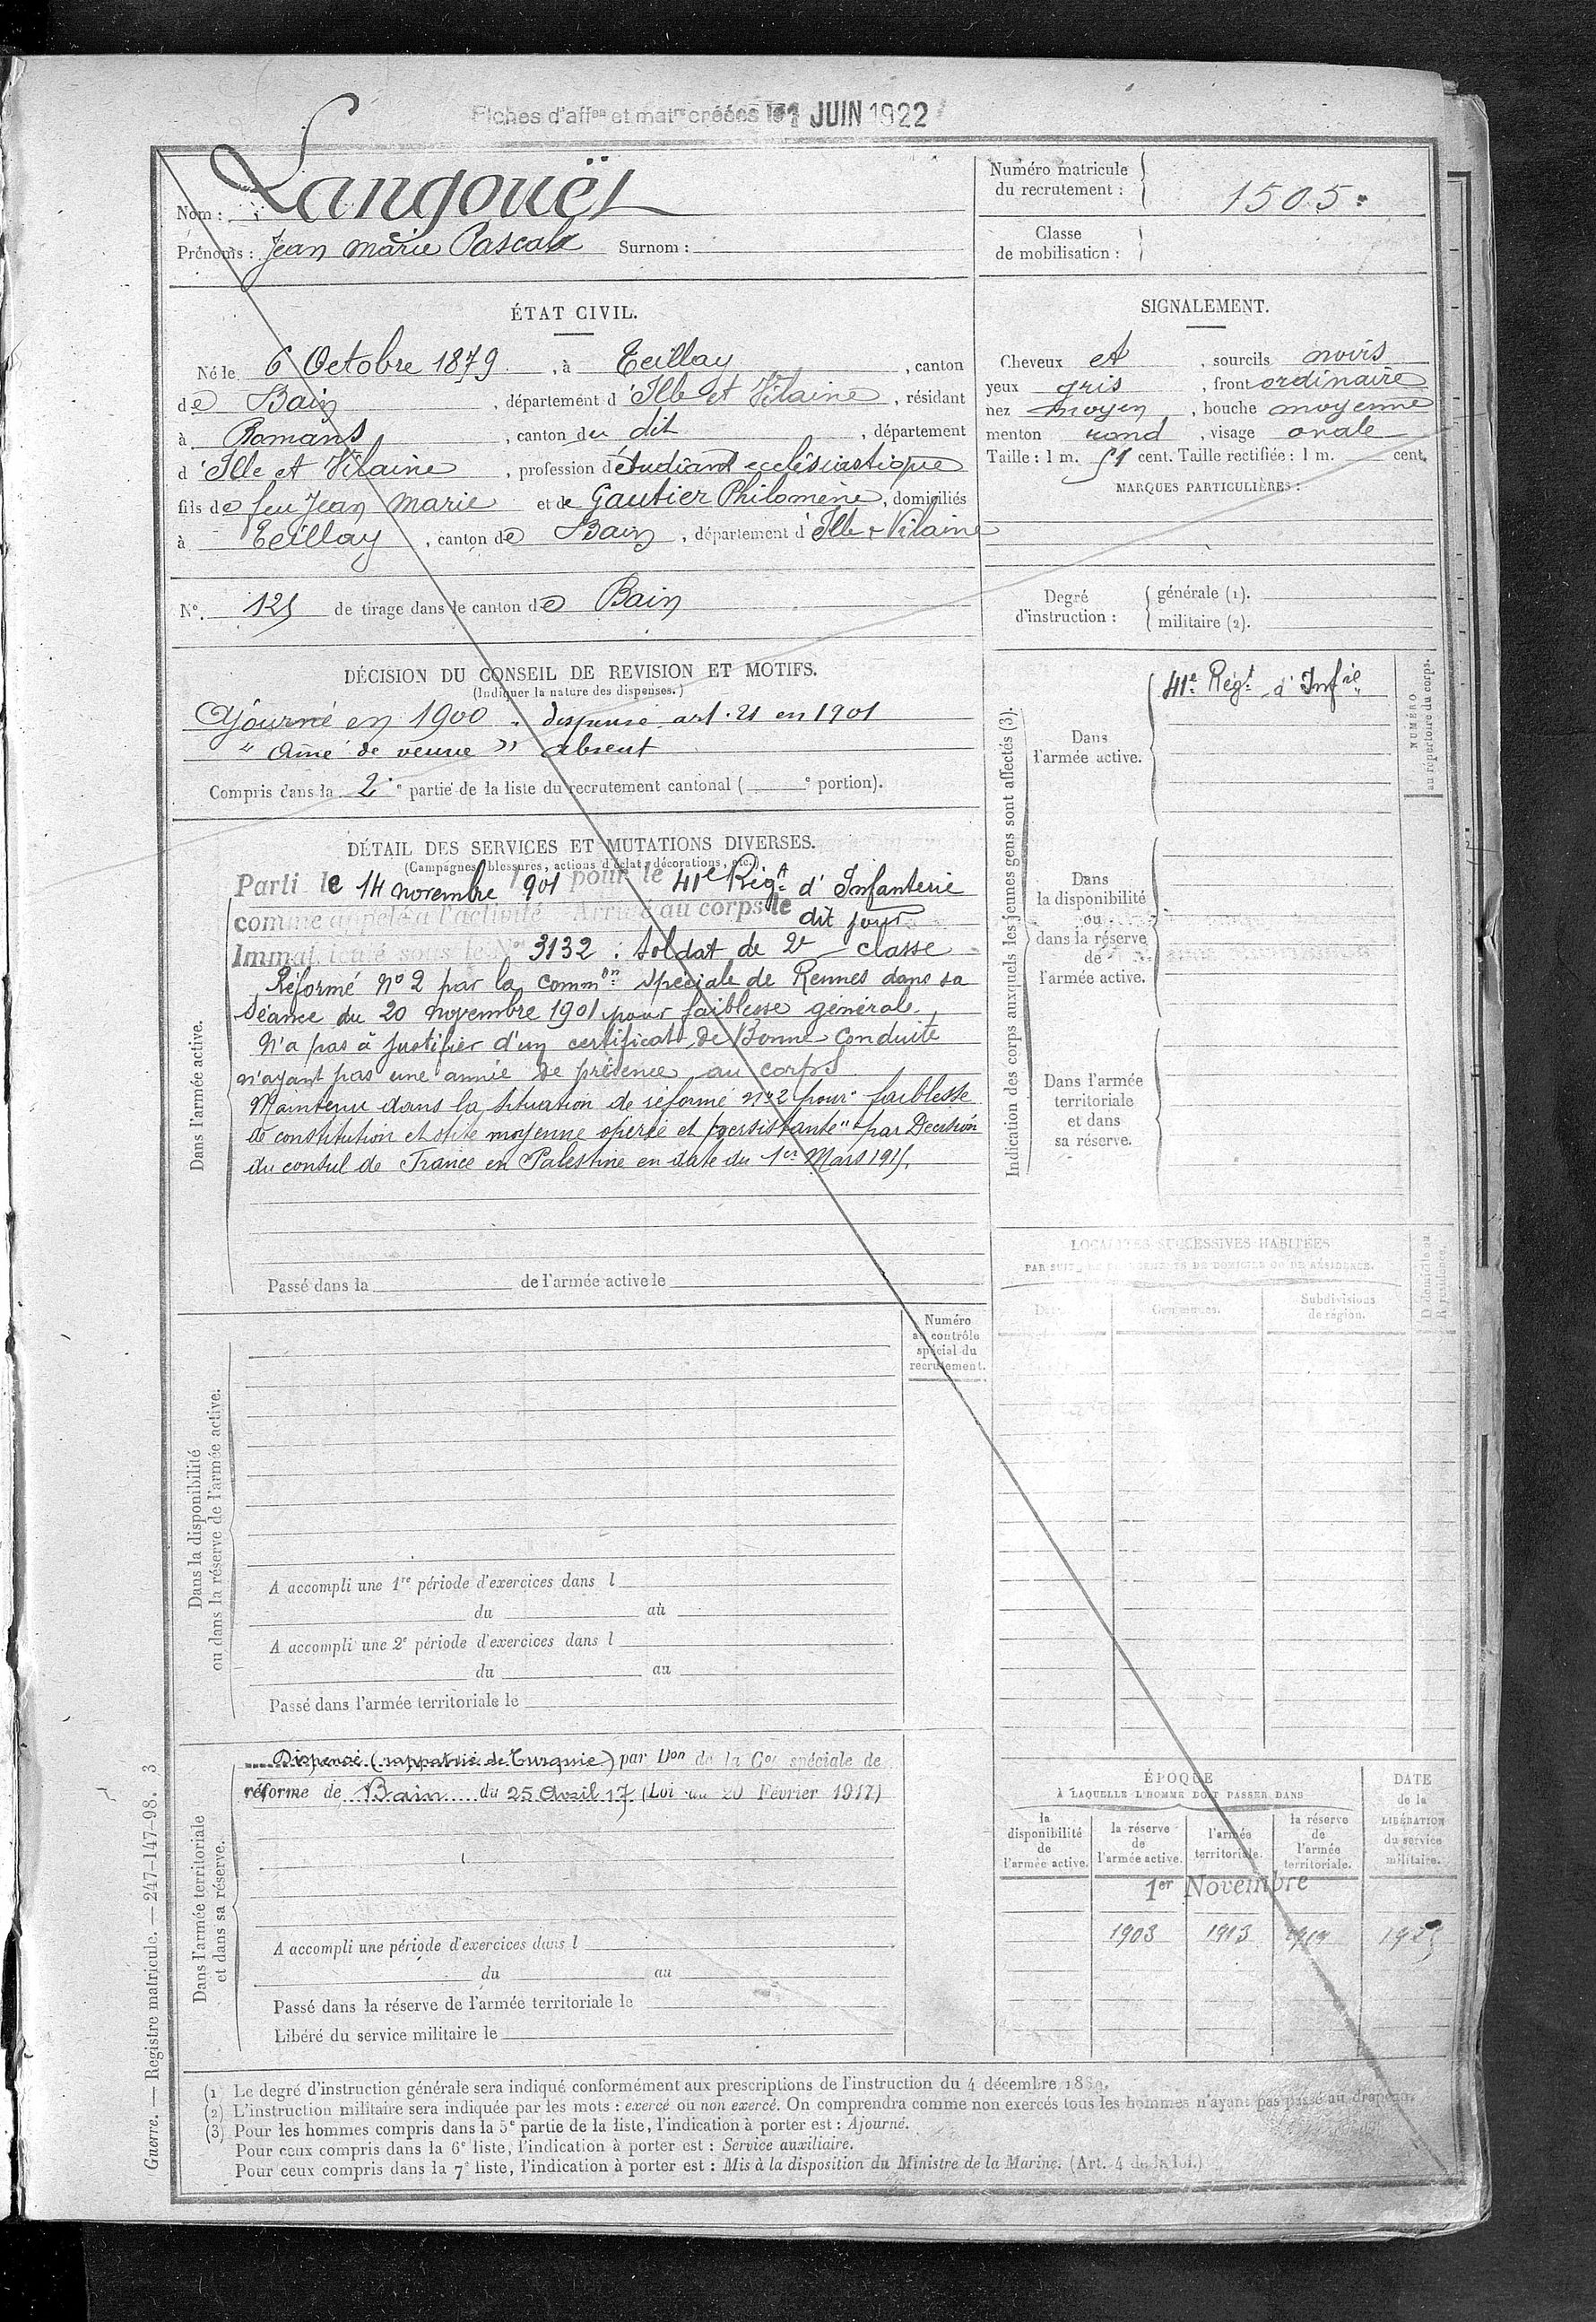 Fiches d'affon et matre créées le 1 JUIN 1922
Nom : Langouët
Prénoms : Jean Marie Pascal Surnom :
Numéro matricule
du recrutement :
1505
Classe
de mobilisation :
ÉTAT CIVIL.
Né le 6 Octobre 1879, à Teillay, canton
de Bain, département d'Ille et Vilaine, résidant
à Romans, canton du dit, département
d'Ille et Vilaine, profession d'étudiant ecclésiastique
fils de feu Jean Marie et de Gautier Philomène, domiciliés
à Teillay, canton de Bain, département d'Ille & Vilaine
N° 125 de tirage dans le canton de Bain
SIGNALEMENT.
Cheveux et, sourcils noirs
yeux gris, front ordinaire
nez moyen, bouche moyenne
menton rond, visage ovale
Taille : 1 m. 51 cent. Taille rectifiée : 1 m. cent.
MARQUES PARTICULIÈRES :
Degré
d'instruction :
générale (1).
militaire (2).
DÉCISION DU CONSEIL DE REVISION ET MOTIFS.
(Indiquer la nature des dispenses.)
Ajourné en 1900 dispensé art. 21 en 1901
" Aîné de veuve " absent
Compris dans la 2e partie de la liste du recrutement cantonal ( e portion).
DÉTAIL DES SERVICES ET MUTATIONS DIVERSES.
(Campagnes, blessures, actions d'éclat, décorations, etc.)
Dans l'armée active.
Parti le 14 novembre 1901 pour le 41e Régt d'Infanterie
comme appelé à l'activité Arrivé au corps le dit jour
Immatriculé sous le N° 3132 : Soldat de 2e classe
Réformé N° 2 par la common spéciale de Rennes dans sa
séance du 20 novembre 1901 pour faiblesse générale.
N'a pas à justifier d'un certificat de Bonne Conduite
n'ayant pas une année de présence au corps.
Maintenu dans la situation de réformé n° 2 pour "faiblesse
de constitution et otite moyenne opérée et persistante" par Décision
du consul de France en Palestine en date du 1er Mars 1915.
Passé dans la de l'armée active le
Indication des corps auxquels les jeunes gens sont affectés (3).
Dans
l'armée active.
41e Régt d'Infie
NUMÉRO
au répertoire du corps.
Dans
la disponibilité
ou
dans la réserve
de
l'armée active.
Dans l'armée
territoriale
et dans
sa réserve.
LOCALITÉS SUCCESSIVES HABITÉES
PAR SUITE DE CHANGEMENTS DE DOMICILE OU DE RÉSIDENCE.
Communes.
Subdivisions
de région.
Numéro
au contrôle
spécial du
recrutement.
Dans la disponibilité
ou dans la réserve de l'armée active.
A accompli une 1re période d'exercices dans l
du au
A accompli une 2e période d'exercices dans l
du au
Passé dans l'armée territoriale le
Dans l'armée territoriale
et dans sa réserve.
Dispensé (rappatrié de Turquie) par Don de la Con spéciale de
réforme de Bain du 25 Avril 17 (Loi du 20 Février 1917)
A accompli une période d'exercices dans l
du au
Passé dans la réserve de l'armée territoriale le
Libéré du service militaire le
ÉPOQUE
À LAQUELLE L'HOMME DOIT PASSER DANS
la
disponibilité
de
l'armée active.
la réserve
de
l'armée active.
l'armée
territoriale.
la réserve
de
l'armée
territoriale.
DATE
de la
LIBÉRATION
du service
militaire.
1er Novembre
1903 1913
(1) Le degré d'instruction générale sera indiqué conformément aux prescriptions de l'instruction du 4 décembre
(2) L'instruction militaire sera indiquée par les mots : exercé ou non exercé. On comprendra comme non exercés tous les hommes n'ayant pas passé au drapeau.
(3) Pour les hommes compris dans la 5e partie de la liste, l'indication à porter est : Ajourné.
Pour ceux compris dans la 6e liste, l'indication à porter est : Service auxiliaire.
Pour ceux compris dans la 7e liste, l'indication à porter est : Mis à la disposition du Ministre de la Marine. (Art. 4 de la loi.)
Guerre. — Registre matricule. — 247-147-98. 3